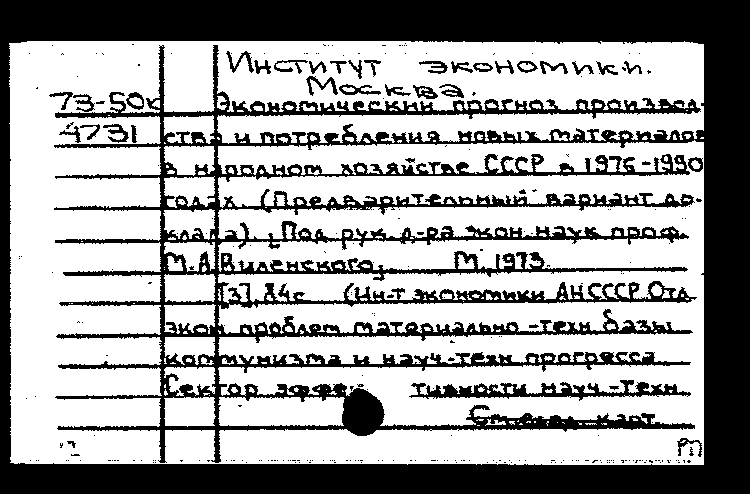 Институт экономики.
Москва.
73-50к Экономический прогноз производ-
4731 ства и потребления новых материалов
в народном хозяйстве СССР в 1976-1990
годах. (Предварительный вариант до-
клада). [Под рук. д-ра экон. наук проф.
М.А. Виленского]. М., 1973.
[3], 84с (Ин-т экономики АН СССР Отд
экон проблем материально-техн базы
коммунизма и науч.-техн прогресса
Сектор эффективности науч.-техн.
См. след. карт.